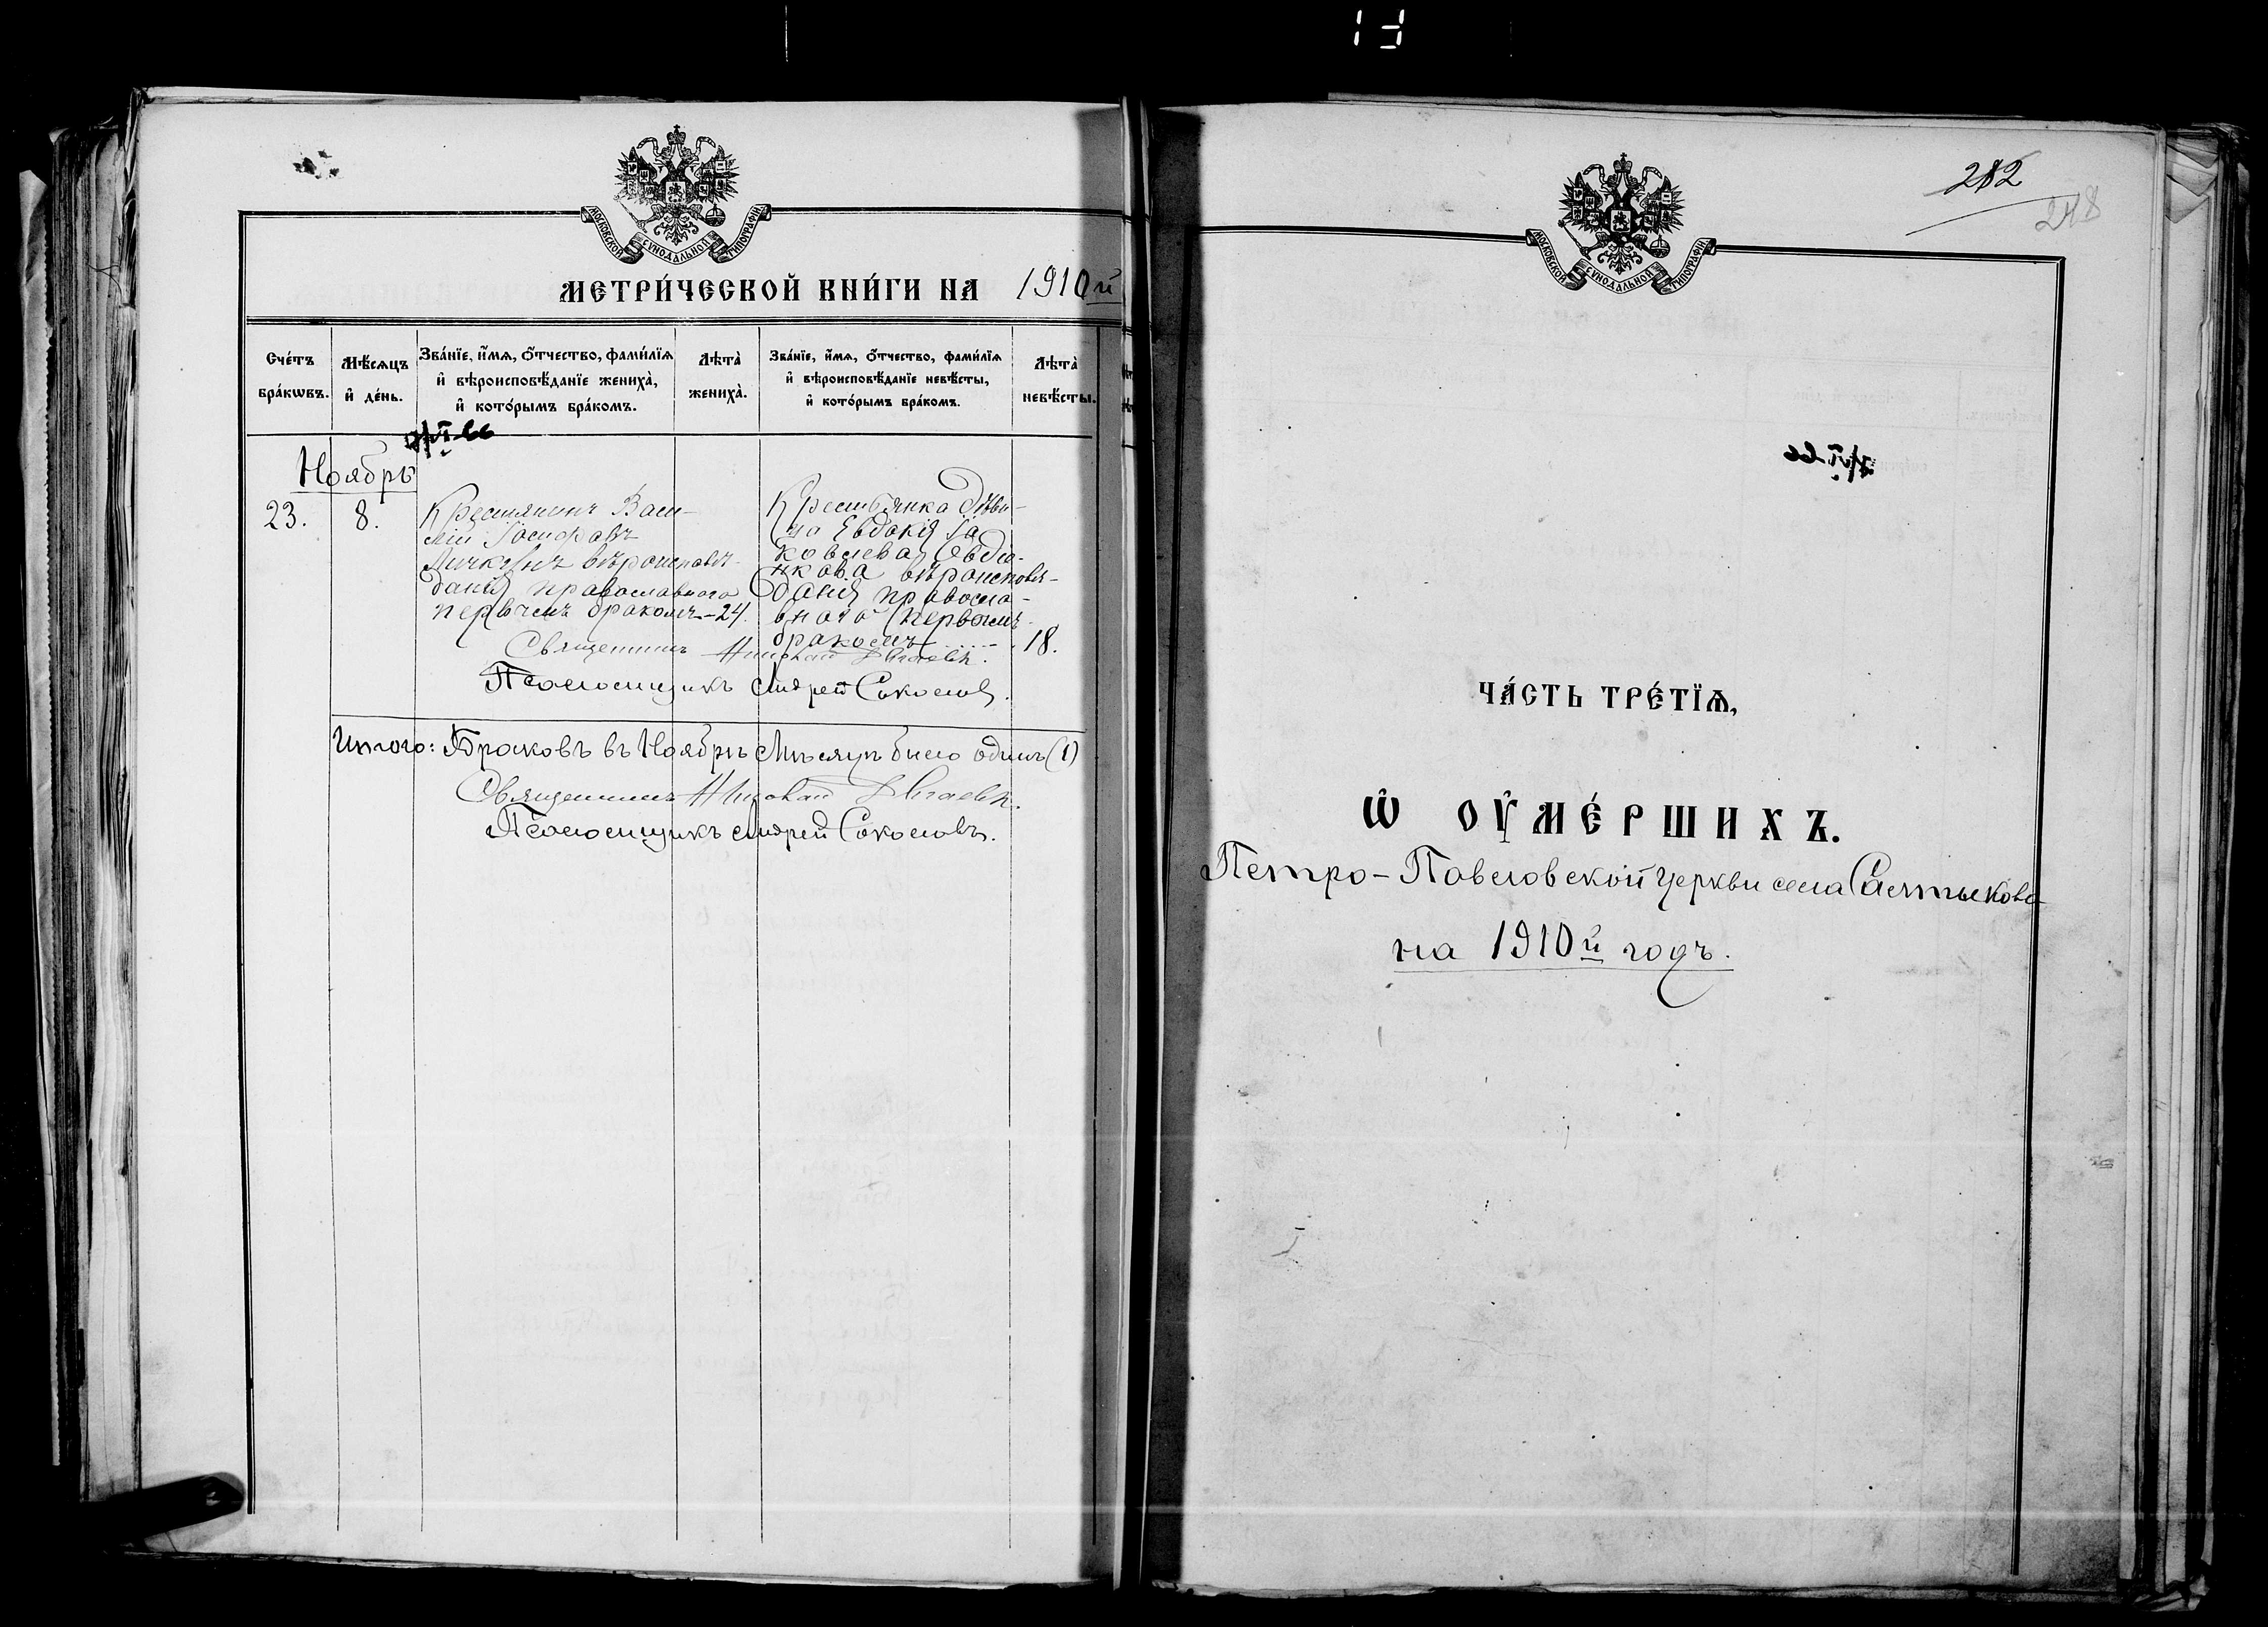 МОСКОВСКОЙ СѴНОДАЛЬНОЙ ТИПОГРАФІИ
МЕТРИ́ЧЕСКОЙ КНИ́ГИ НА 1910й
Сче́тъ бра́кѡвъ.
Мѣ́сѧцъ и҆ де́нь.
Зва́нїе, и҆́мѧ, ѻ҆́тчество, фами́лїѧ
и҆ вѣроисповѣ́данїе жениха̀,
и҆ кото́рымъ бра́комъ.
Лѣта̀ жениха̀.
Зва́нїе, и҆́мѧ, ѻ҆́тчество, фами́лїѧ
и҆ вѣроисповѣ́данїе невѣ́сты,
и҆ кото́рымъ бра́комъ.
Лѣта̀ невѣ́сты.
Ноябрь
23.
8.
Крестьянинъ Васи-
лій Іосифовъ
вѣроисповѣ-
данія православнаго
первымъ бракомъ - 24.
Крестьянка дѣви-
ца Евдокія Іа
ковлева Овдіе-
нкова вѣроисповѣ-
данія правосла-
внаго первымъ
бракомъ 18.
Священникъ Николай
Псаломщикъ Андрей Соколовъ.
Итого: Браковъ въ Ноябрѣ Мѣсяцѣ было одинъ (1)
Священникъ Николай
Псаломщикъ Андрей Соколовъ.
282
248
МОСКОВСКОЙ СѴНОДАЛЬНОЙ ТИПОГРАФІИ
ЧА́СТЬ ТРЕ́ТЇѦ,
Ѡ҆ ОУ҆МЕ́РШИХЪ.
Петро-Павловской церкви села Салтыкова
на 1910й годъ.